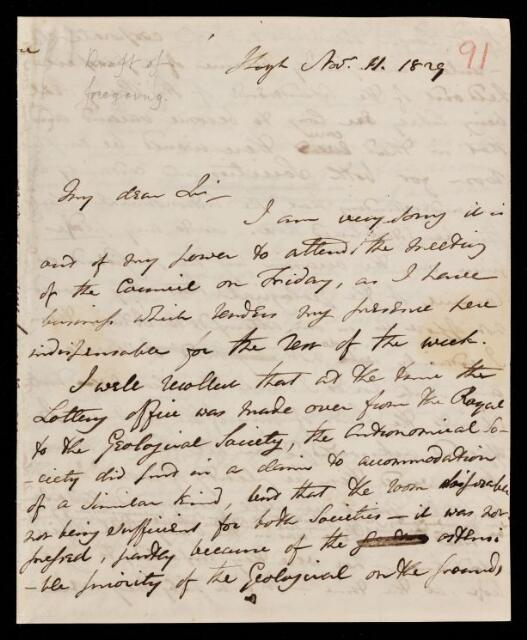 Draft of
foregoing.
91
Slough Nov. 11. 1829
My dear Sir –
I am very sorry it is
out of my power to attend the meeting
of the Council on Friday, as I have
business which renders my presence here
indispensable for the rest of the week.
I well recollect that at the time the
Lottery office was made over from the Royal
to the Geological Society, the Astronomical So-
-ciety did send in a claim to accommodation
of a similar kind but that the room disposable
not being sufficient for both Societies – it was not
pressed, partly because of the ostensi
-ble priority of the Geological on the grounds